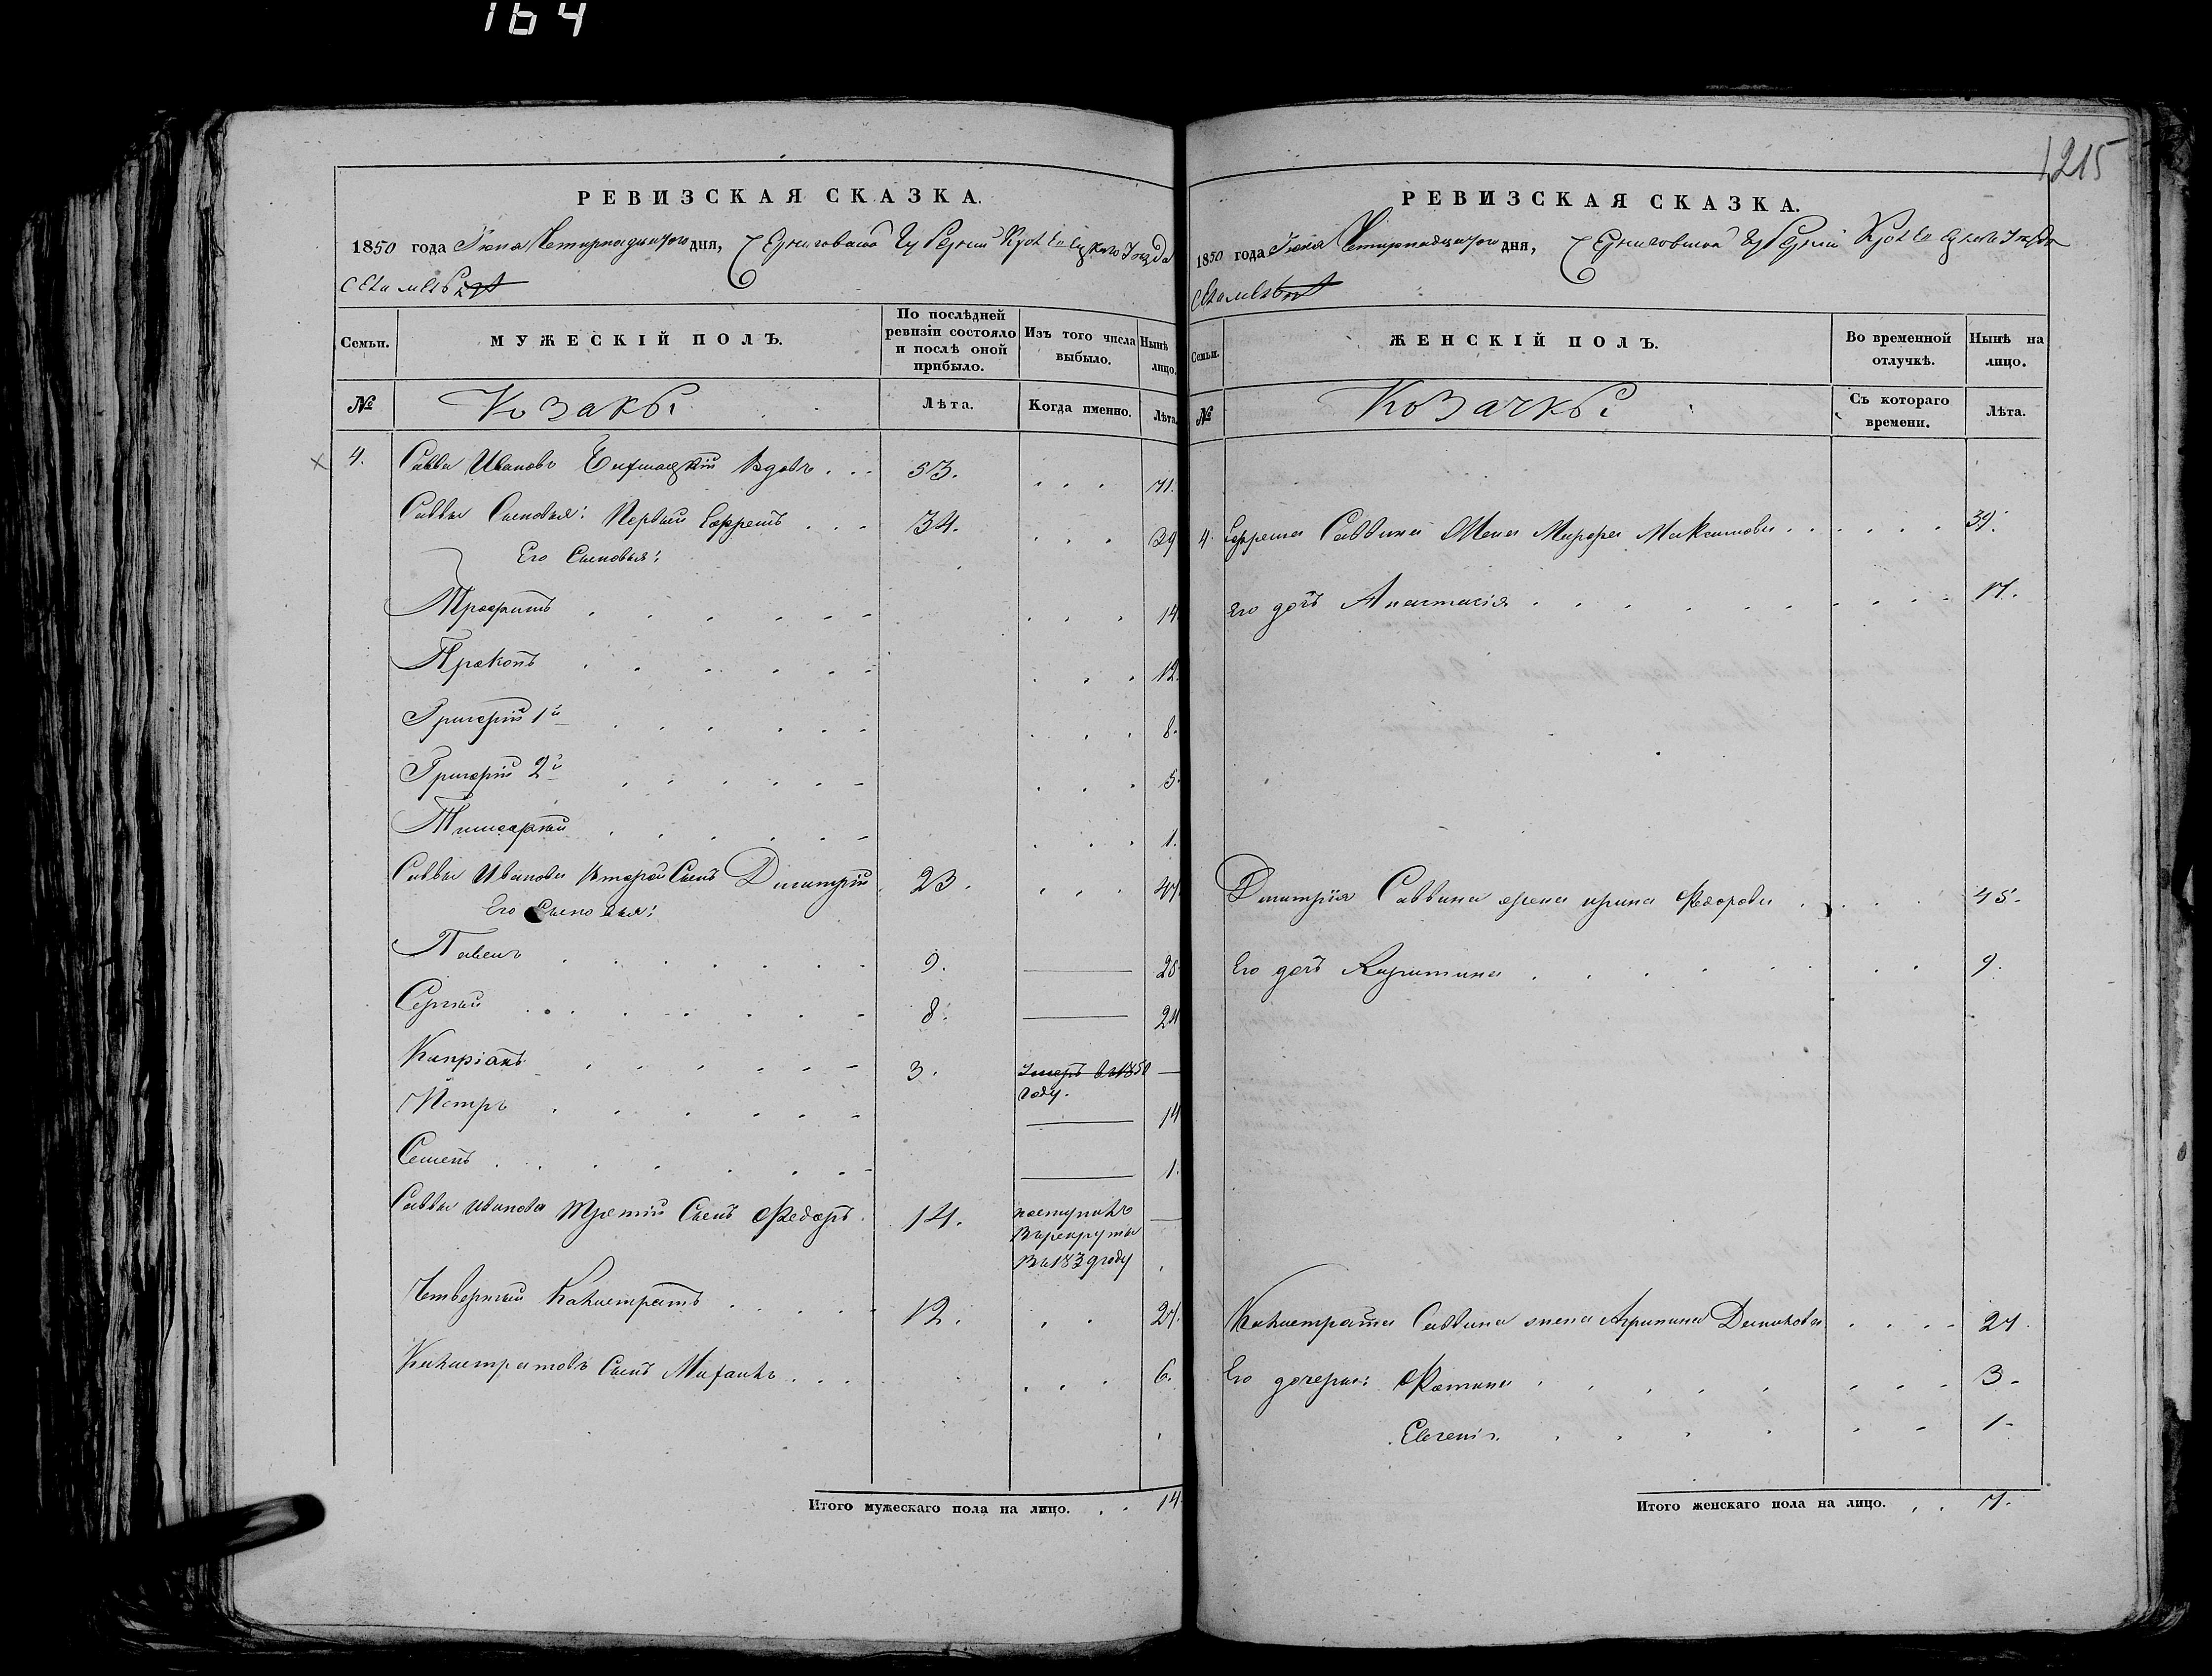 164
1215
РЕВИЗСКАЯ СКАЗКА.
1850 года Июня Четырнадцатого дня, Черниговской Губернии
МУЖЕСКІЙ ПОЛЪ.
Семьи.
По послѣдней ревизіи состояло и послѣ оной прибыло.
Изъ того числа выбыло.
Нынѣ лицо.
№
Козакы
Лѣта.
Когда именно.
Лѣта.
4. Савва Ивановъ Вдовъ . . . 53. . . . 71.
Саввы Сыновья: Первый Ефремъ . . . 34. . . .
Его Сыновья:
Трофимъ 14
Пракопъ 12.
Григорій 1й 8.
Григорій 2й 5.
Тимофей 1.
Саввы Иванова Второй Сынъ Дмитрій 23.
Его Сыновья:
Павелъ 9.
Сергей 8. 24
Кипріанъ 3. 1850 году. —
Петръ 14
Семенъ 1.
Саввы Иванова Третій Сынъ Федоръ 14. поступилъ —
Врекруты
Въ 1839 году
Четвертый Калистратъ 12. 27.
Калистратовъ Сынъ Михаилъ 6.
Итого мужескаго пола на лицо. . . 14
РЕВИЗСКАЯ СКАЗКА.
1850 года Июня Четырнадцатого дня, Черниговской Губерніи
Семьи.
ЖЕНСКІЙ ПОЛЪ.
Во временной отлучкѣ.
Нынѣ на лицо.
№
Козачкы
Съ котораго времени.
Лѣта.
4. Ефрема Саввина Жена Марфа Максимова 39.
Его дочь Анастасія 17.
Дмитрія Саввина жена ирина Федорова 45.
Его дочь 9.
Калистрата Саввина жена Агрипина 27.
Его дочери: Фотина 3.
Евгенія 1
Итого женскаго пола на лицо. . . 7.